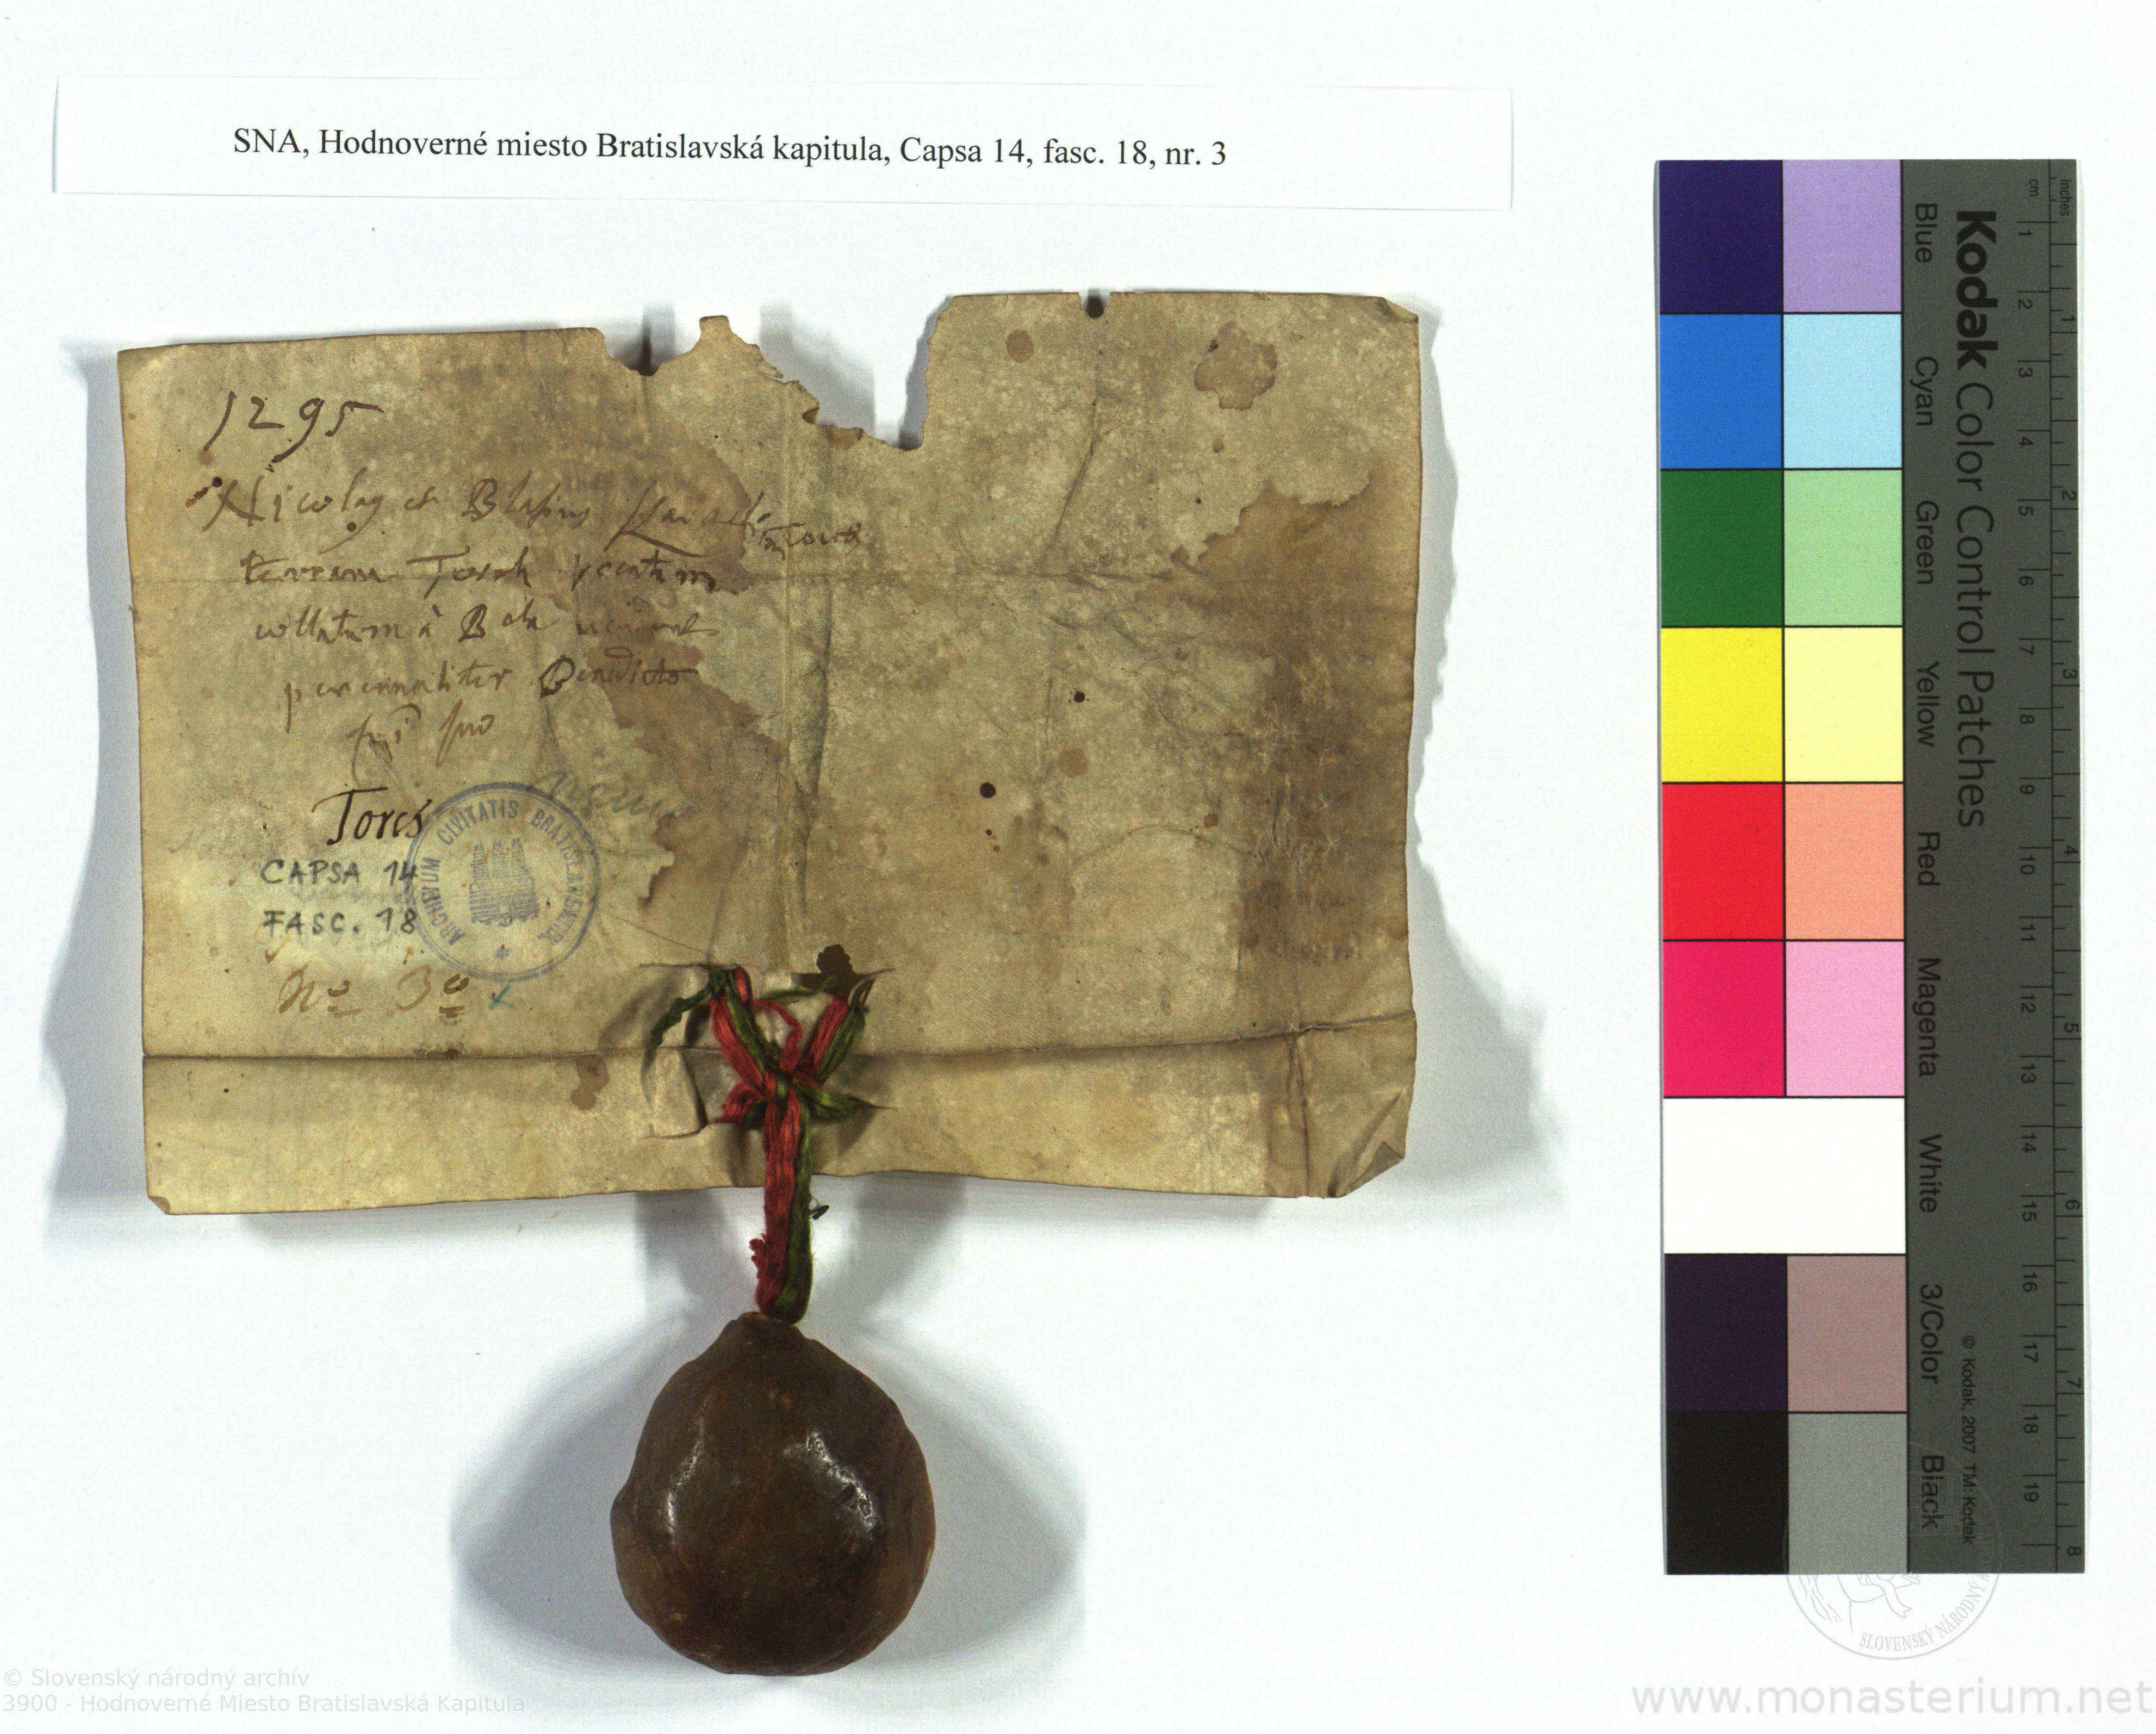 SNA, Hodnoverné miesto Bratislavská kapitula, Capsa 14, fasc. 18, nr. 3
1295
Nicolag et Blasius
terram Torch
collatam à Bela
perennaliter Benedicto
fri suo
Torcs
ARCHIVUM CIVITATIS BRATISLAVENSIS
CAPSA 14
FASC. 18
No 3o
Kodak Color Control Patches
Blue Cyan Green Yellow Red Magenta White 3/Color Black
© Kodak, 2007 TM: Kodak
cm 1 2 3 4 5 6 7 8 9 10 11 12 13 14 15 16 17 18 19
inches 1 2 3 4 5 6 7 8
SLOVENSKÝ NÁRODNÝ
© Slovenský národný archív
3900 - Hodnoverné Miesto Bratislavská Kapitula
www.monasterium.net